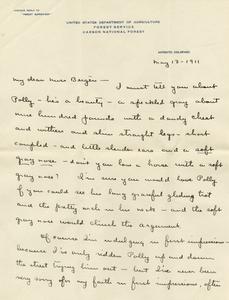 ADDRESS REPLY TO
"FOREST SUPERVISOR"
UNITED STATES DEPARTMENT OF AGRICULTURE
FOREST SERVICE
CARSON NATIONAL FOREST
ANTONITO, COLORADO
May 13 - 1911
My dear Miss Bergère —
I must tell you about
Polly - he's a beauty - a speckled gray about
nine hundred pounds with a dandy chest
and withers and slim straight legs - short
coupled - and little slender ears and a soft
gray nose - don't you has a horse with a soft
gray nose? I'm sure you would love Polly
if you could see his long graceful gliding trot
and the pretty arch in his neck - and the soft
gray nose would clinch the argument.
Of course I'm indulging in first impressions -
because I've only ridden Polly up and down
the street trying him out - but I've never been
very sorry for my faith in first impressions, after